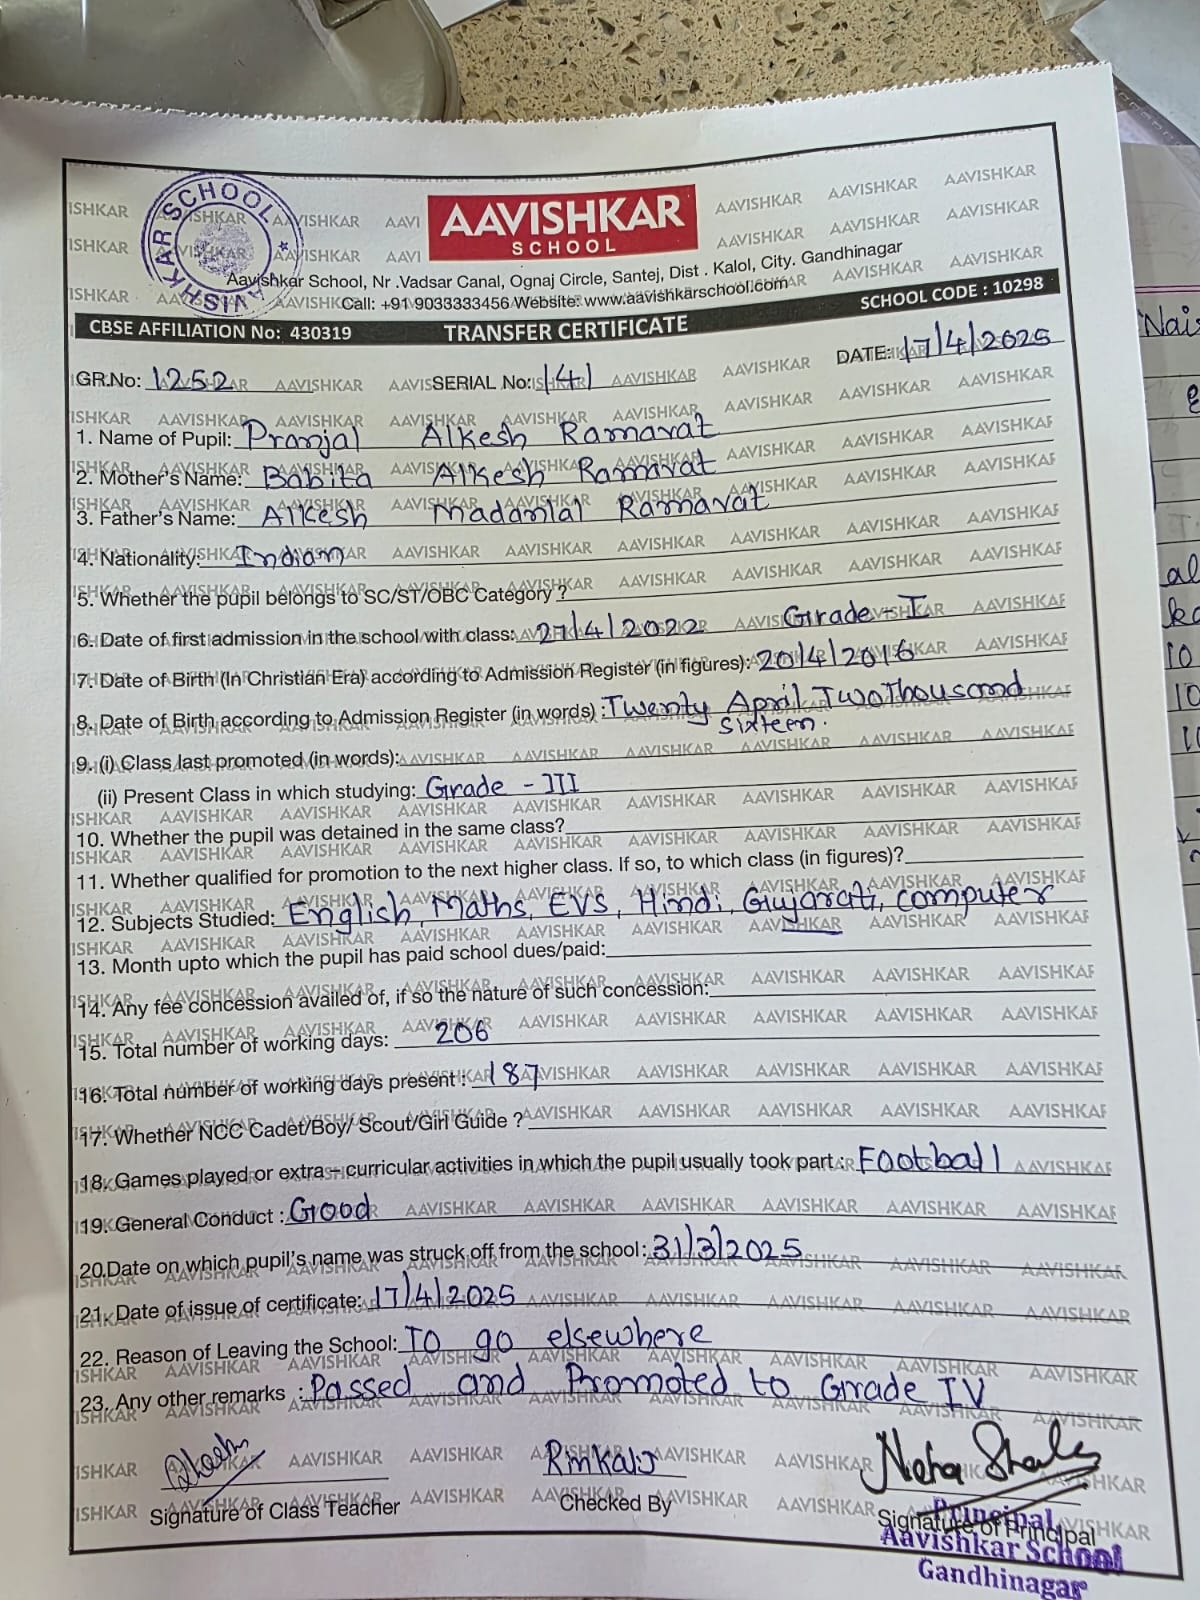 AAVISHKAR SCHOOL
AAVISHKAR
SCHOOL
Aavishkar School, Nr .Vadsar Canal, Ognaj Circle, Santej, Dist . Kalol, City. Gandhinagar
Call: +91 9033333456 Website: www.aavishkarschool.com
CBSE AFFILIATION No: 430319 TRANSFER CERTIFICATE SCHOOL CODE : 10298
GR.No: 1252 SERIAL No: 141 DATE: 17/4/2025
1. Name of Pupil: Pranjal Alkesh Ramavat
2. Mother's Name: Babita Alkesh Ramavat
3. Father's Name: Alkesh Madanlal Ramavat
4. Nationality: Indian
5. Whether the pupil belongs to SC/ST/OBC Category ?
6. Date of first admission in the school with class: 27/4/2022 Grade - I
7. Date of Birth (In Christian Era) according to Admission Register (in figures): 20/4/2016
8. Date of Birth according to Admission Register (in words) : Twenty April Two Thousand
Sixteen.
9. (i) Class last promoted (in words):
(ii) Present Class in which studying: Grade - III
10. Whether the pupil was detained in the same class?
11. Whether qualified for promotion to the next higher class. If so, to which class (in figures)?
12. Subjects Studied: English, Maths, EVS, Hindi, Gujarati, computer
13. Month upto which the pupil has paid school dues/paid:
14. Any fee concession availed of, if so the nature of such concession:
15. Total number of working days: 206
16. Total number of working days present : 187
17. Whether NCC Cadet/Boy/ Scout/Girl Guide ?
18. Games played or extra – curricular activities in which the pupil usually took part : Football
19. General Conduct : Good
20.Date on which pupil's name was struck off from the school: 31/3/2025
21. Date of issue of certificate: 17/4/2025
22. Reason of Leaving the School: To go elsewhere
23. Any other remarks : Passed and Promoted to Grade IV
Neha
Signature of Class Teacher Checked By Signature of Principal
Principal
Aavishkar School
Gandhinagar